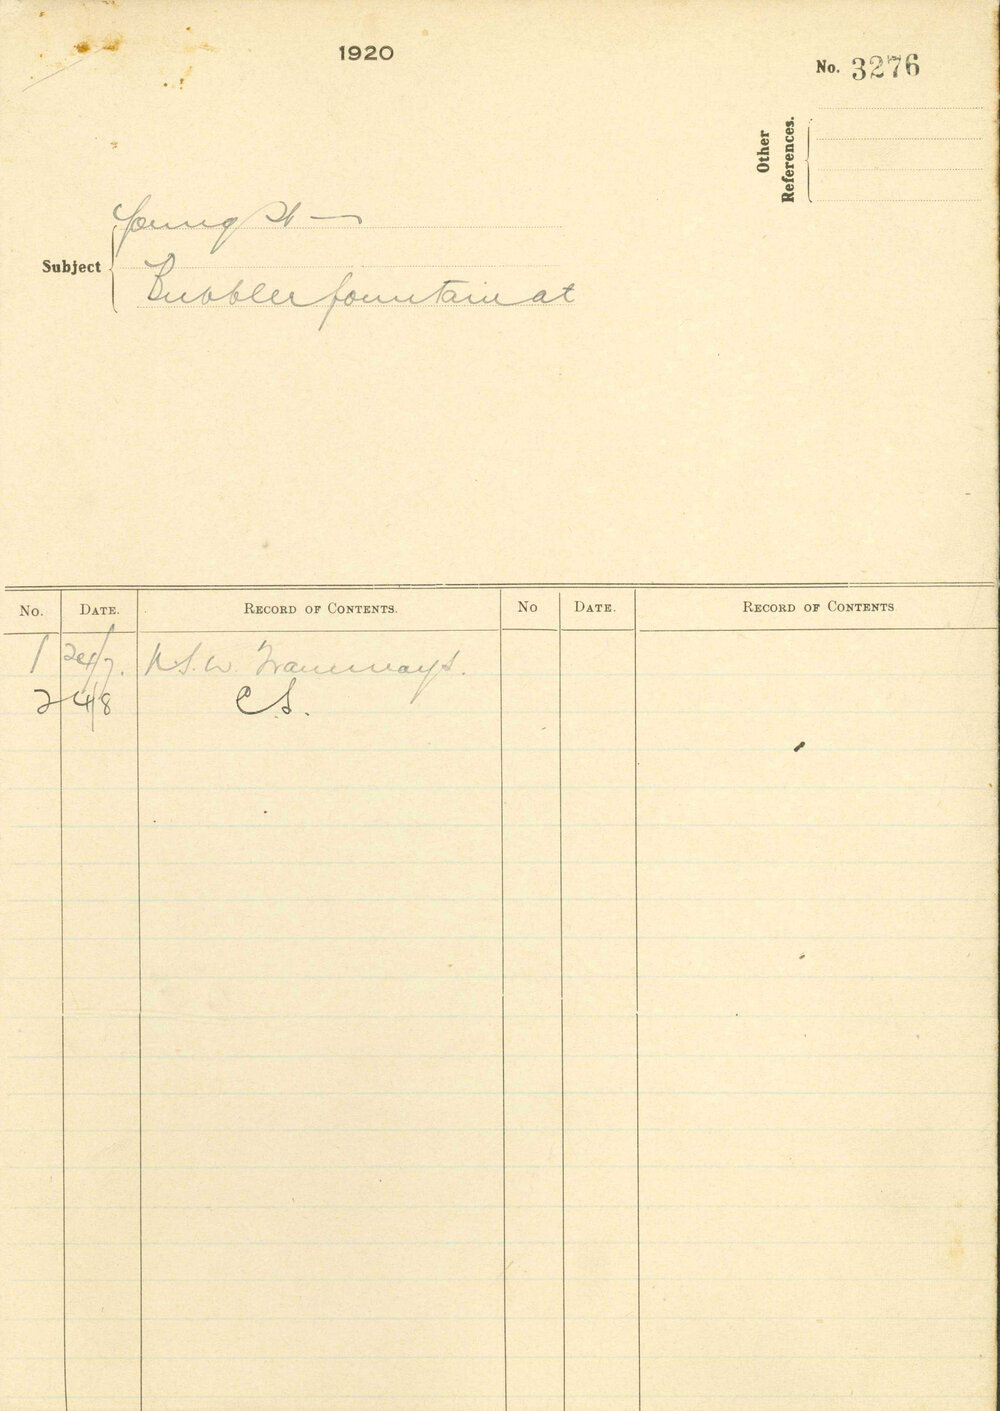 1920
No. 3276
Other
References.
Young St —
Subject
Bubbler fountain at
No. DATE. RECORD OF CONTENTS. No DATE. RECORD OF CONTENTS
1 24/7. N.S.W. Tramways.
2 4/8 C.S.